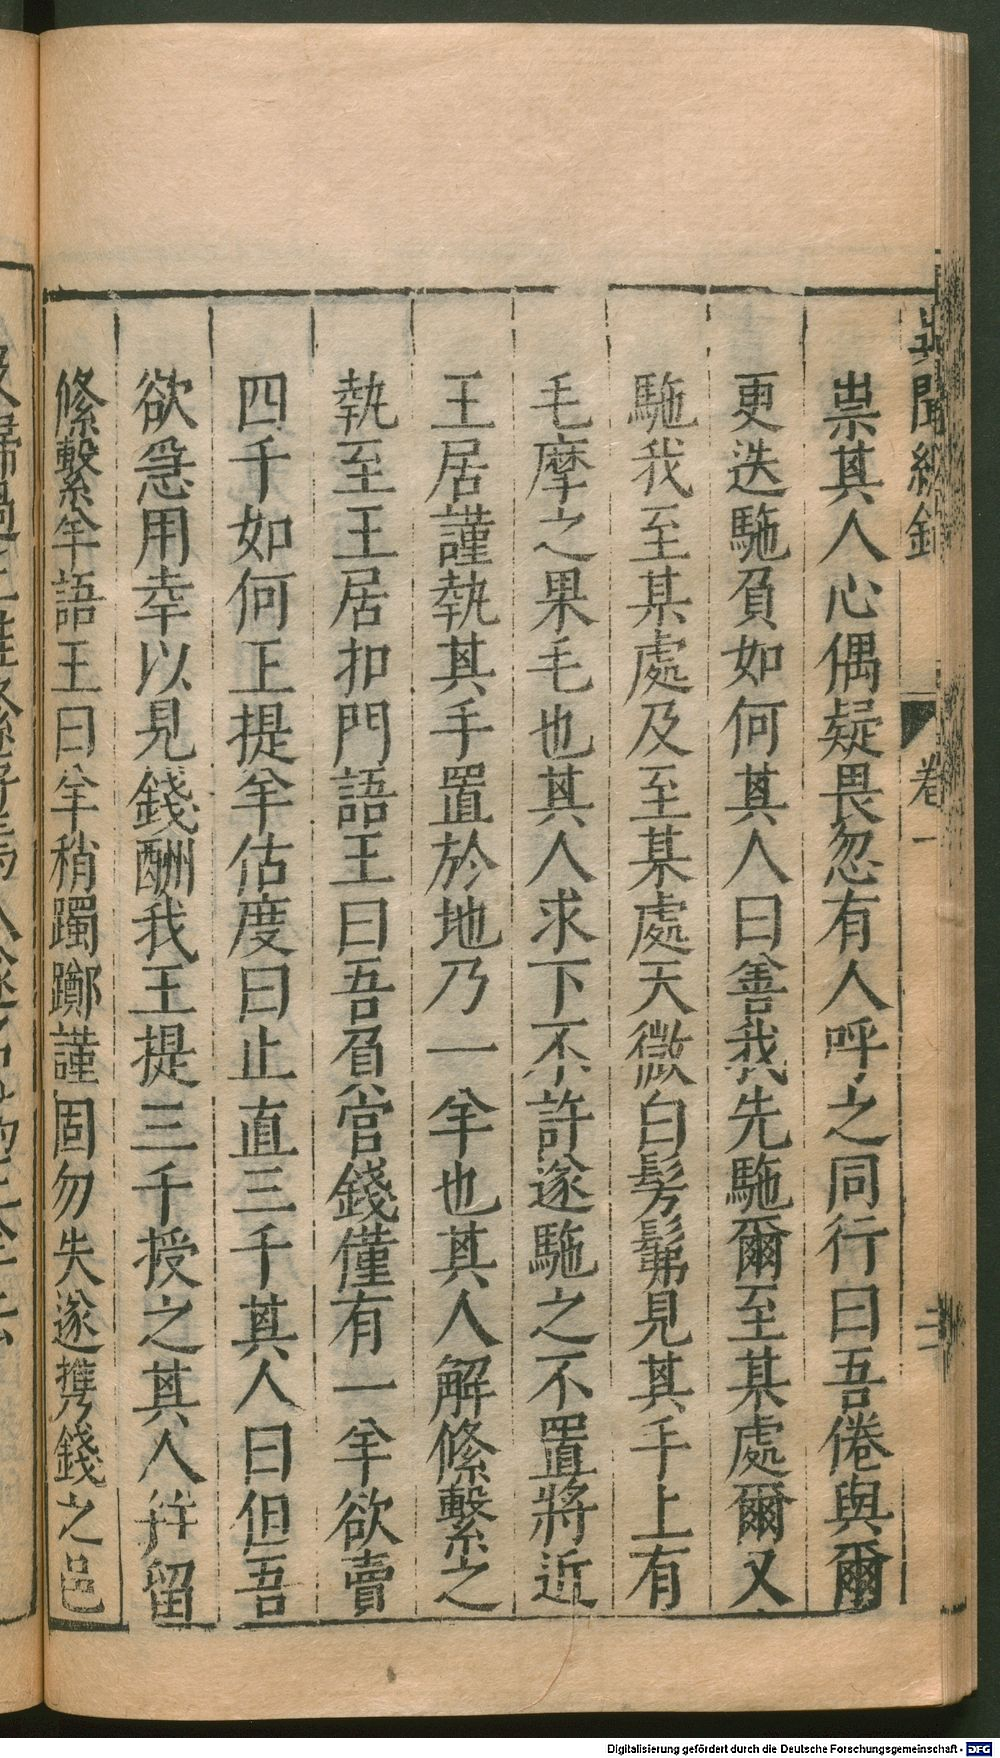 異聞總錄 卷一 二
祟其人心偶疑畏忽有人呼之同行曰吾倦與爾
更迭駞負如何其人曰善我先駞爾至某處爾又
駞我至某處及至某處天微白髣髴見其手上有
毛摩之果毛也其人求下不許遂駞之不置將近
王居謹執其手置於地乃一羊也其人解絛繫之
執至王居扣門語王曰吾負官錢僅有一羊欲賣
四千如何王提羊估度曰止直三千其人曰但吾
欲急用幸以見錢酬我王提三千授之其人幷留
絛繫羊語王曰羊稍躅躑謹固勿失遂携錢之邑
Digitalisierung gefördert durch die Deutsche Forschungsgemeinschaft - DFG